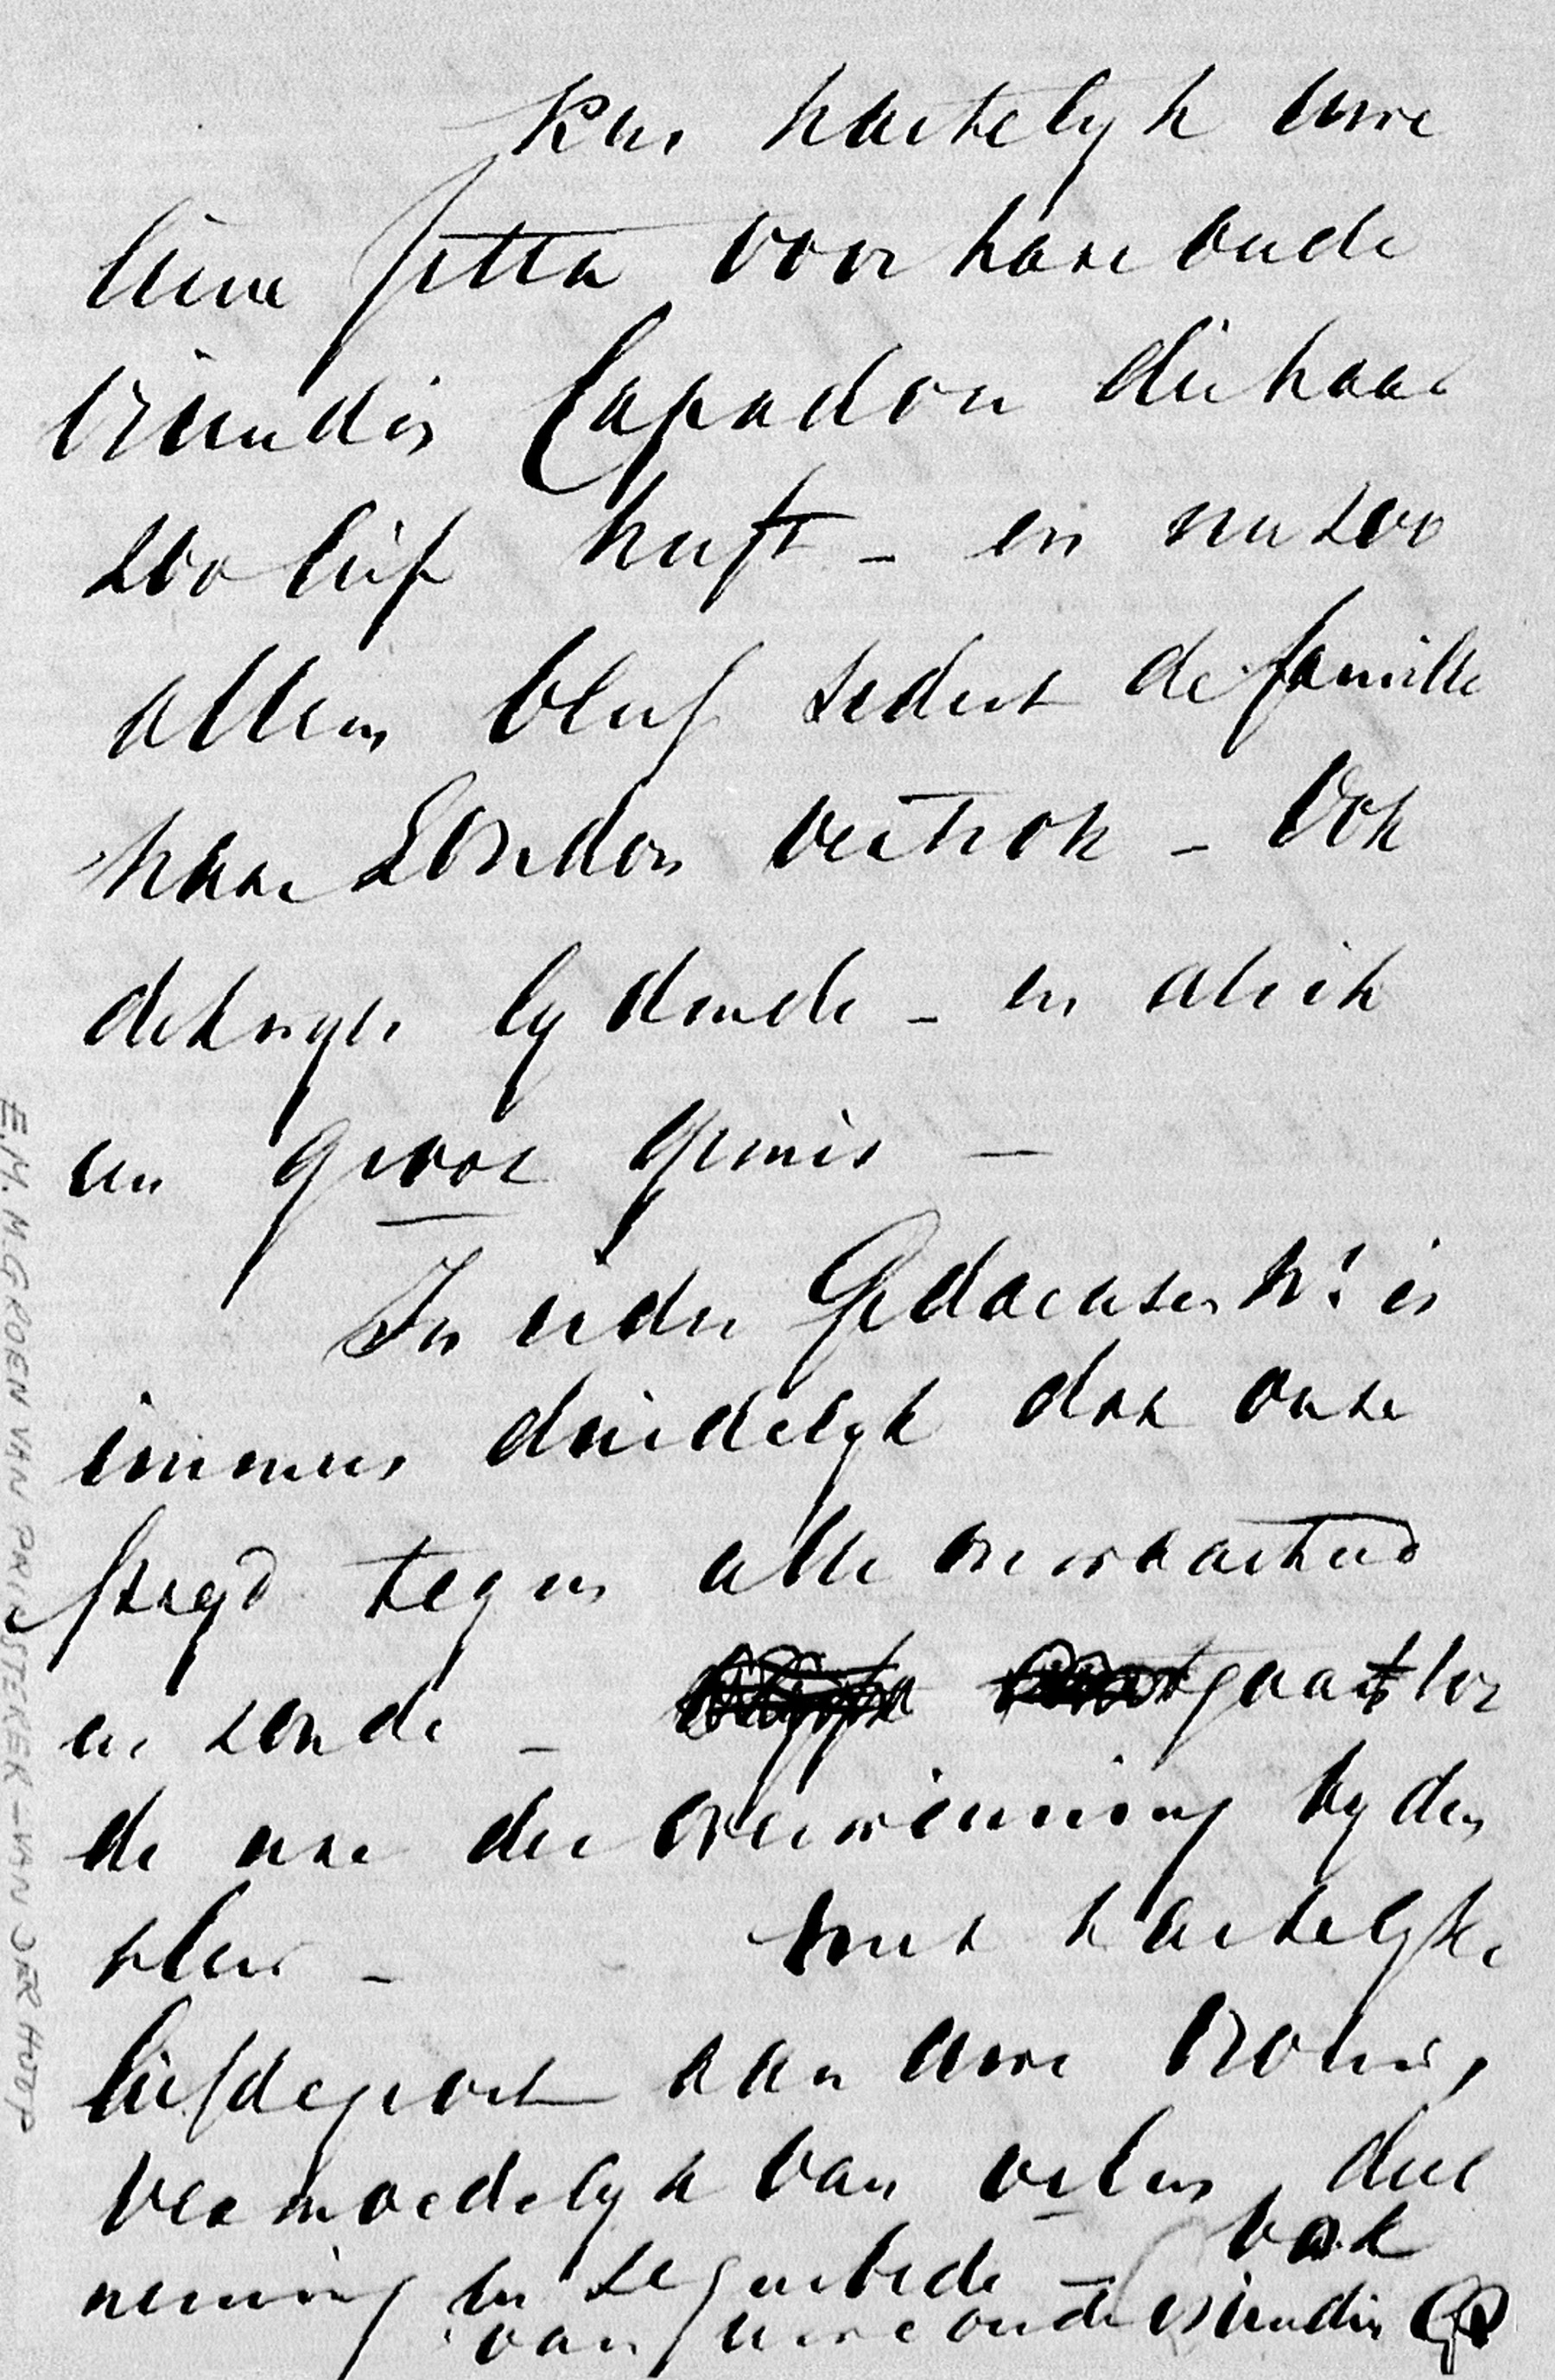 Kus hartelyk uwe
lieve Jetta voor hare oude
vriendin Capadose die haar
zoo lief heeft – en nu zoo
alleen bleef sedert de familie
naar London vertrok – Ook
dikwyls lydende – en altijd
een groot gemis –
In ieder Gedachten is
immers duidelyk dat onze
stryd tegen alle onwaarheid
en zonde – gaat voor
de ure der overwinning by den
Heer – met hartelyke
liefdegroet aan uwe vrouw,
vermoedelyk van velen, deel
neming en zegenbede – ook
van uwe oude vriendin GP
E.M.M. GROEN VAN PRINSTERER – VAN DER HOOP